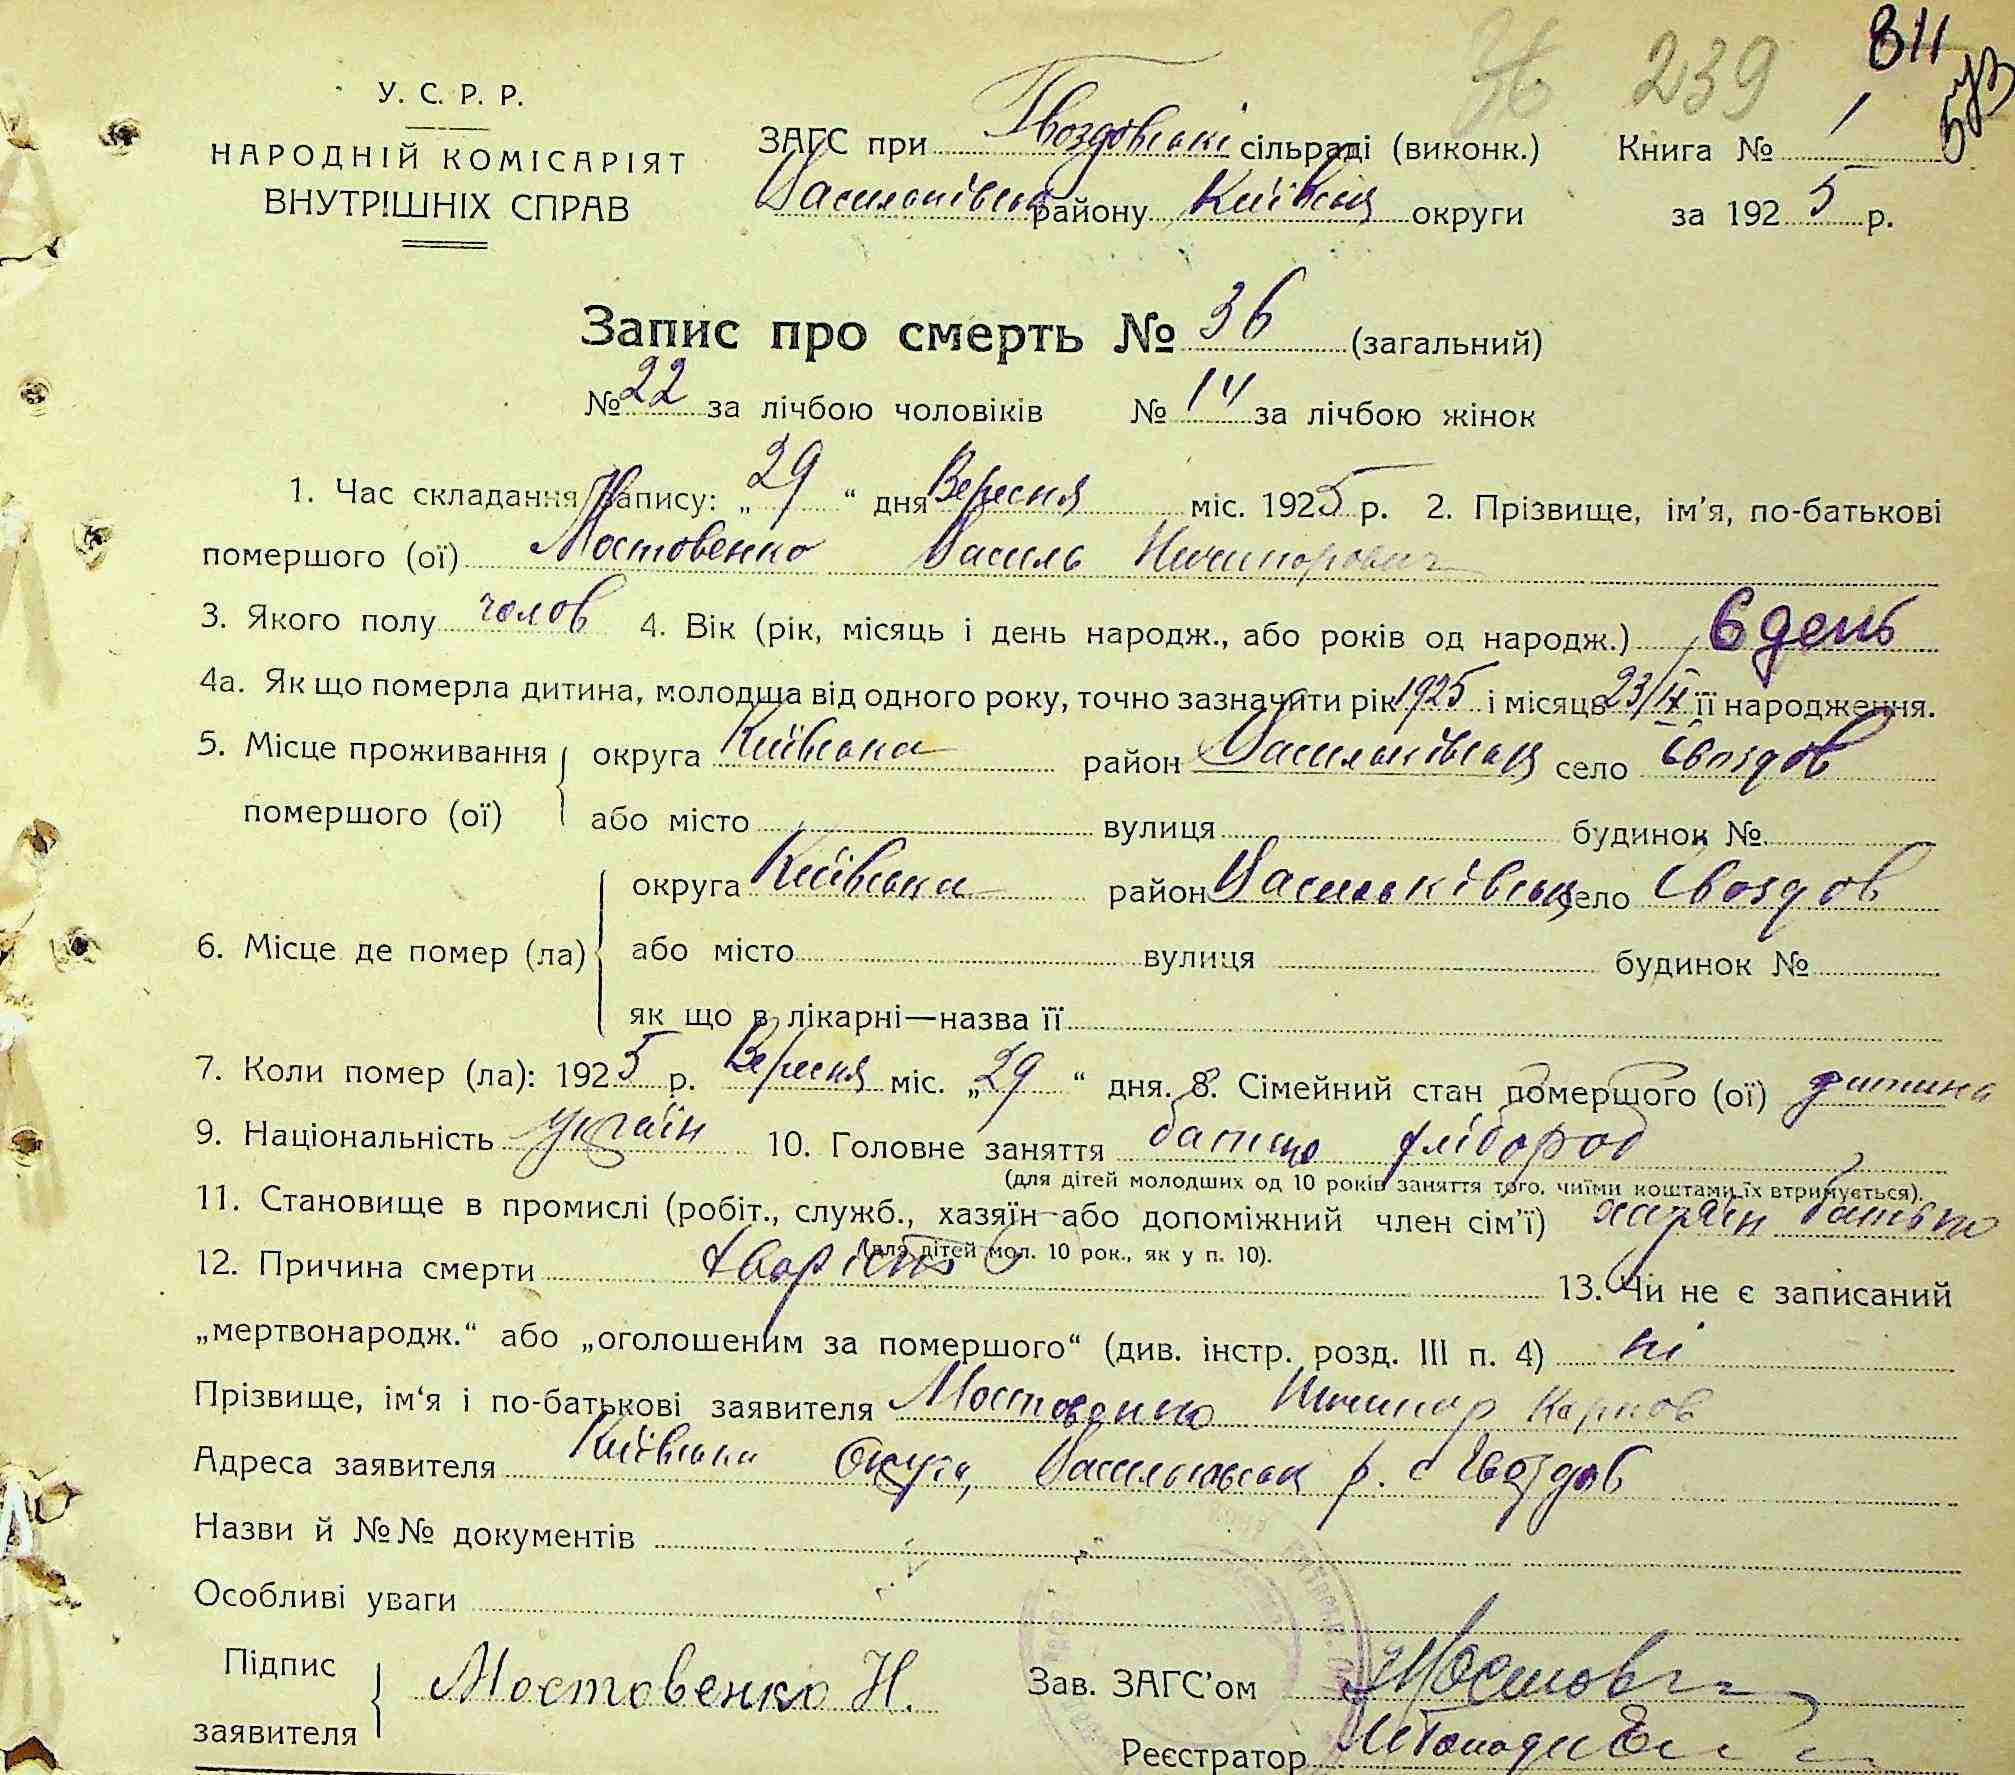 239 811
У. С. Р. Р.
НАРОДНІЙ КОМІСАРІЯТ
ВНУТРІШНІХ СПРАВ
ЗАГС при Гвоздовські сільраді (виконк.) Книга № 1
Васильківськ району Київськ округи за 1925 р.
Запис про смерть № 36 (загальний)
№ 22 за лічбою чоловіків № 14 за лічбою жінок
1. Час складання запису: „29“ дня Вересня міс. 1925 р. 2. Прізвище, ім'я, по-батькові
помершого (ої) Мостовенко Василь Ничипорович
3. Якого полу чолов 4. Вік (рік, місяць і день народж., або років од народж.) 6 день
4а. Як що померла дитина, молодша від одного року, точно зазначити рік 1925 і місяць 23/IX її народження.
5. Місце проживання округа Київська район Васильківськ село Гвоздов
помершого (ої) або місто вулиця будинок №
округа Київська район Васильківськ село Гвоздов
6. Місце де помер (ла) або місто вулиця будинок №
як що в лікарні—назва її
7. Коли помер (ла): 1925 р. Вересня міс. „29“ дня. 8. Сімейний стан помершого (ої) дитина
9. Національність україн 10. Головне заняття батько хлібороб
(для дітей молодших од 10 років заняття того, чиїми коштами їх втримується).
11. Становище в промислі (робіт., служб., хазяїн або допоміжний член сім'ї) хазяїн батько
(для дітей мол. 10 рок., як у п. 10).
12. Причина смерти хворість 13. Чи не є записаний
„мертвонародж.“ або „оголошеним за помершого“ (див. інстр. розд. III п. 4) ні
Прізвище, ім'я і по-батькові заявителя Мостовенко Ничипор Карпов
Адреса заявителя Київська Округа, Васильковськ р. с Гвоздов
Назви й №№ документів
Особливі уваги
Підпис
заявителя Мостовенко Н.
Зав. ЗАГС'ом
Реєстратор